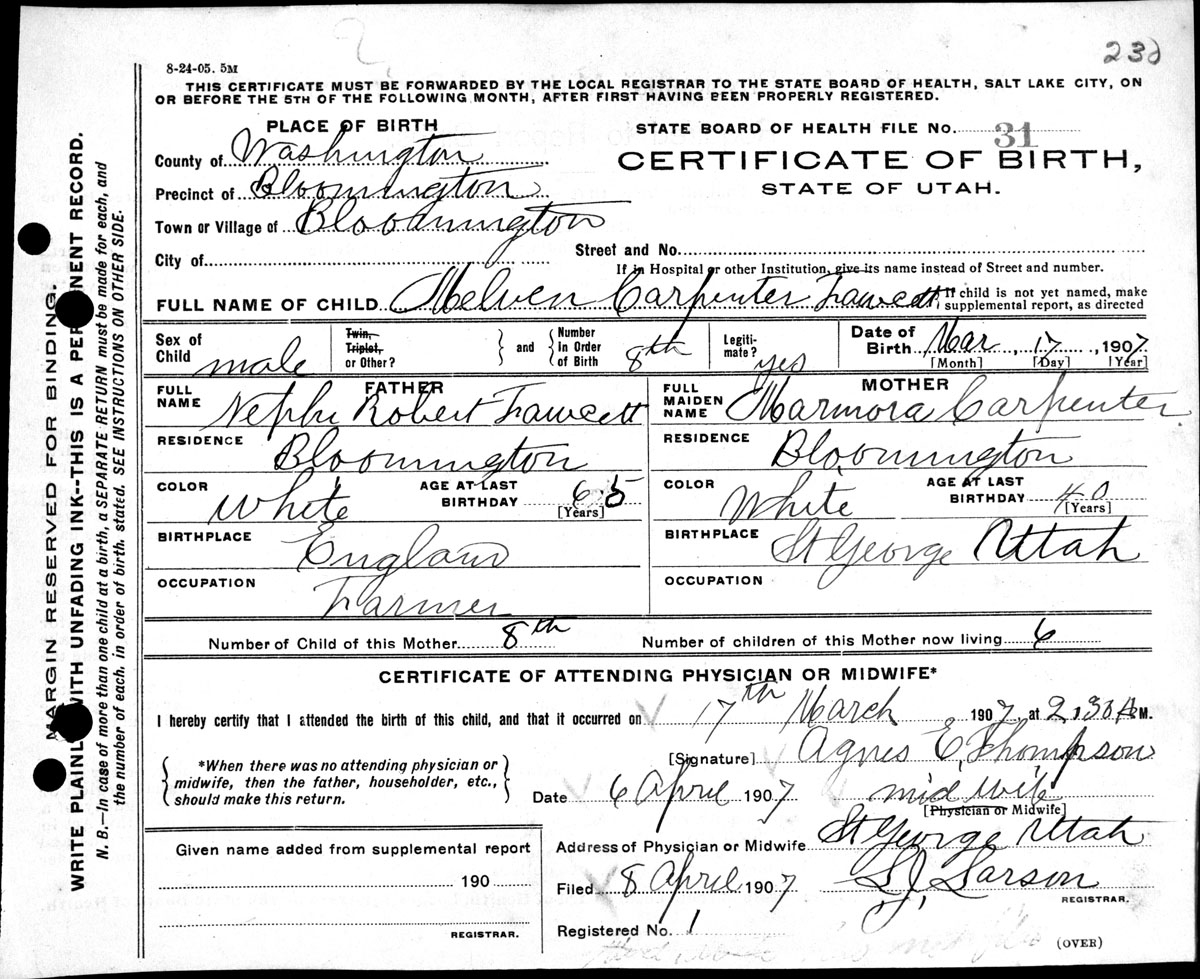 230
8-24-05. 5M
THIS CERTIFICATE MUST BE FORWARDED BY THE LOCAL REGISTRAR TO THE STATE BOARD OF HEALTH, SALT LAKE CITY, ON
OR BEFORE THE 5TH OF THE FOLLOWING MONTH, AFTER FIRST HAVING BEEN PROPERLY REGISTERED.
PLACE OF BIRTH
STATE BOARD OF HEALTH FILE No. 31
CERTIFICATE OF BIRTH,
STATE OF UTAH.
County of Washington
Precinct of Bloomington
Town or Village of Bloomington
City of
Street and No.
If in Hospital or other Institution, give its name instead of Street and number.
FULL NAME OF CHILD Melven Carpenter Fawcett
If child is not yet named, make
supplemental report, as directed
Sex of Child male
Twin, Triplet, or Other?
and
Number In Order of Birth 8th
Legitimate? yes
Date of Birth Mar, 17, 1907
[Month] [Day] [Year]
FATHER
FULL NAME Nephi Robert Fawcett
RESIDENCE Bloomington
COLOR White
AGE AT LAST BIRTHDAY 65 [Years]
BIRTHPLACE England
OCCUPATION Farmer
MOTHER
FULL MAIDEN NAME Marmora Carpenter
RESIDENCE Bloomington
COLOR White
AGE AT LAST BIRTHDAY 40 [Years]
BIRTHPLACE St George Utah
OCCUPATION
Number of Child of this Mother 8th
Number of children of this Mother now living 6
CERTIFICATE OF ATTENDING PHYSICIAN OR MIDWIFE*
I hereby certify that I attended the birth of this child, and that it occurred on 17th March 1907, at 2,30 A.M.
*When there was no attending physician or
midwife, then the father, householder, etc.,
should make this return.
[Signature] Agnes E, Thompson
Date 6 April 1907
mid wife
[Physician or Midwife]
Address of Physician or Midwife St George Utah
Filed 8 April 1907
S. J. Larson
REGISTRAR.
Registered No. 1
(OVER)
Given name added from supplemental report
190
REGISTRAR.
MARGIN RESERVED FOR BINDING.
WRITE PLAINLY WITH UNFADING INK--THIS IS A PERMANENT RECORD.
N. B.—In case of more than one child at a birth, a SEPARATE RETURN must be made for each, and
the number of each, in order of birth, stated. SEE INSTRUCTIONS ON OTHER SIDE.